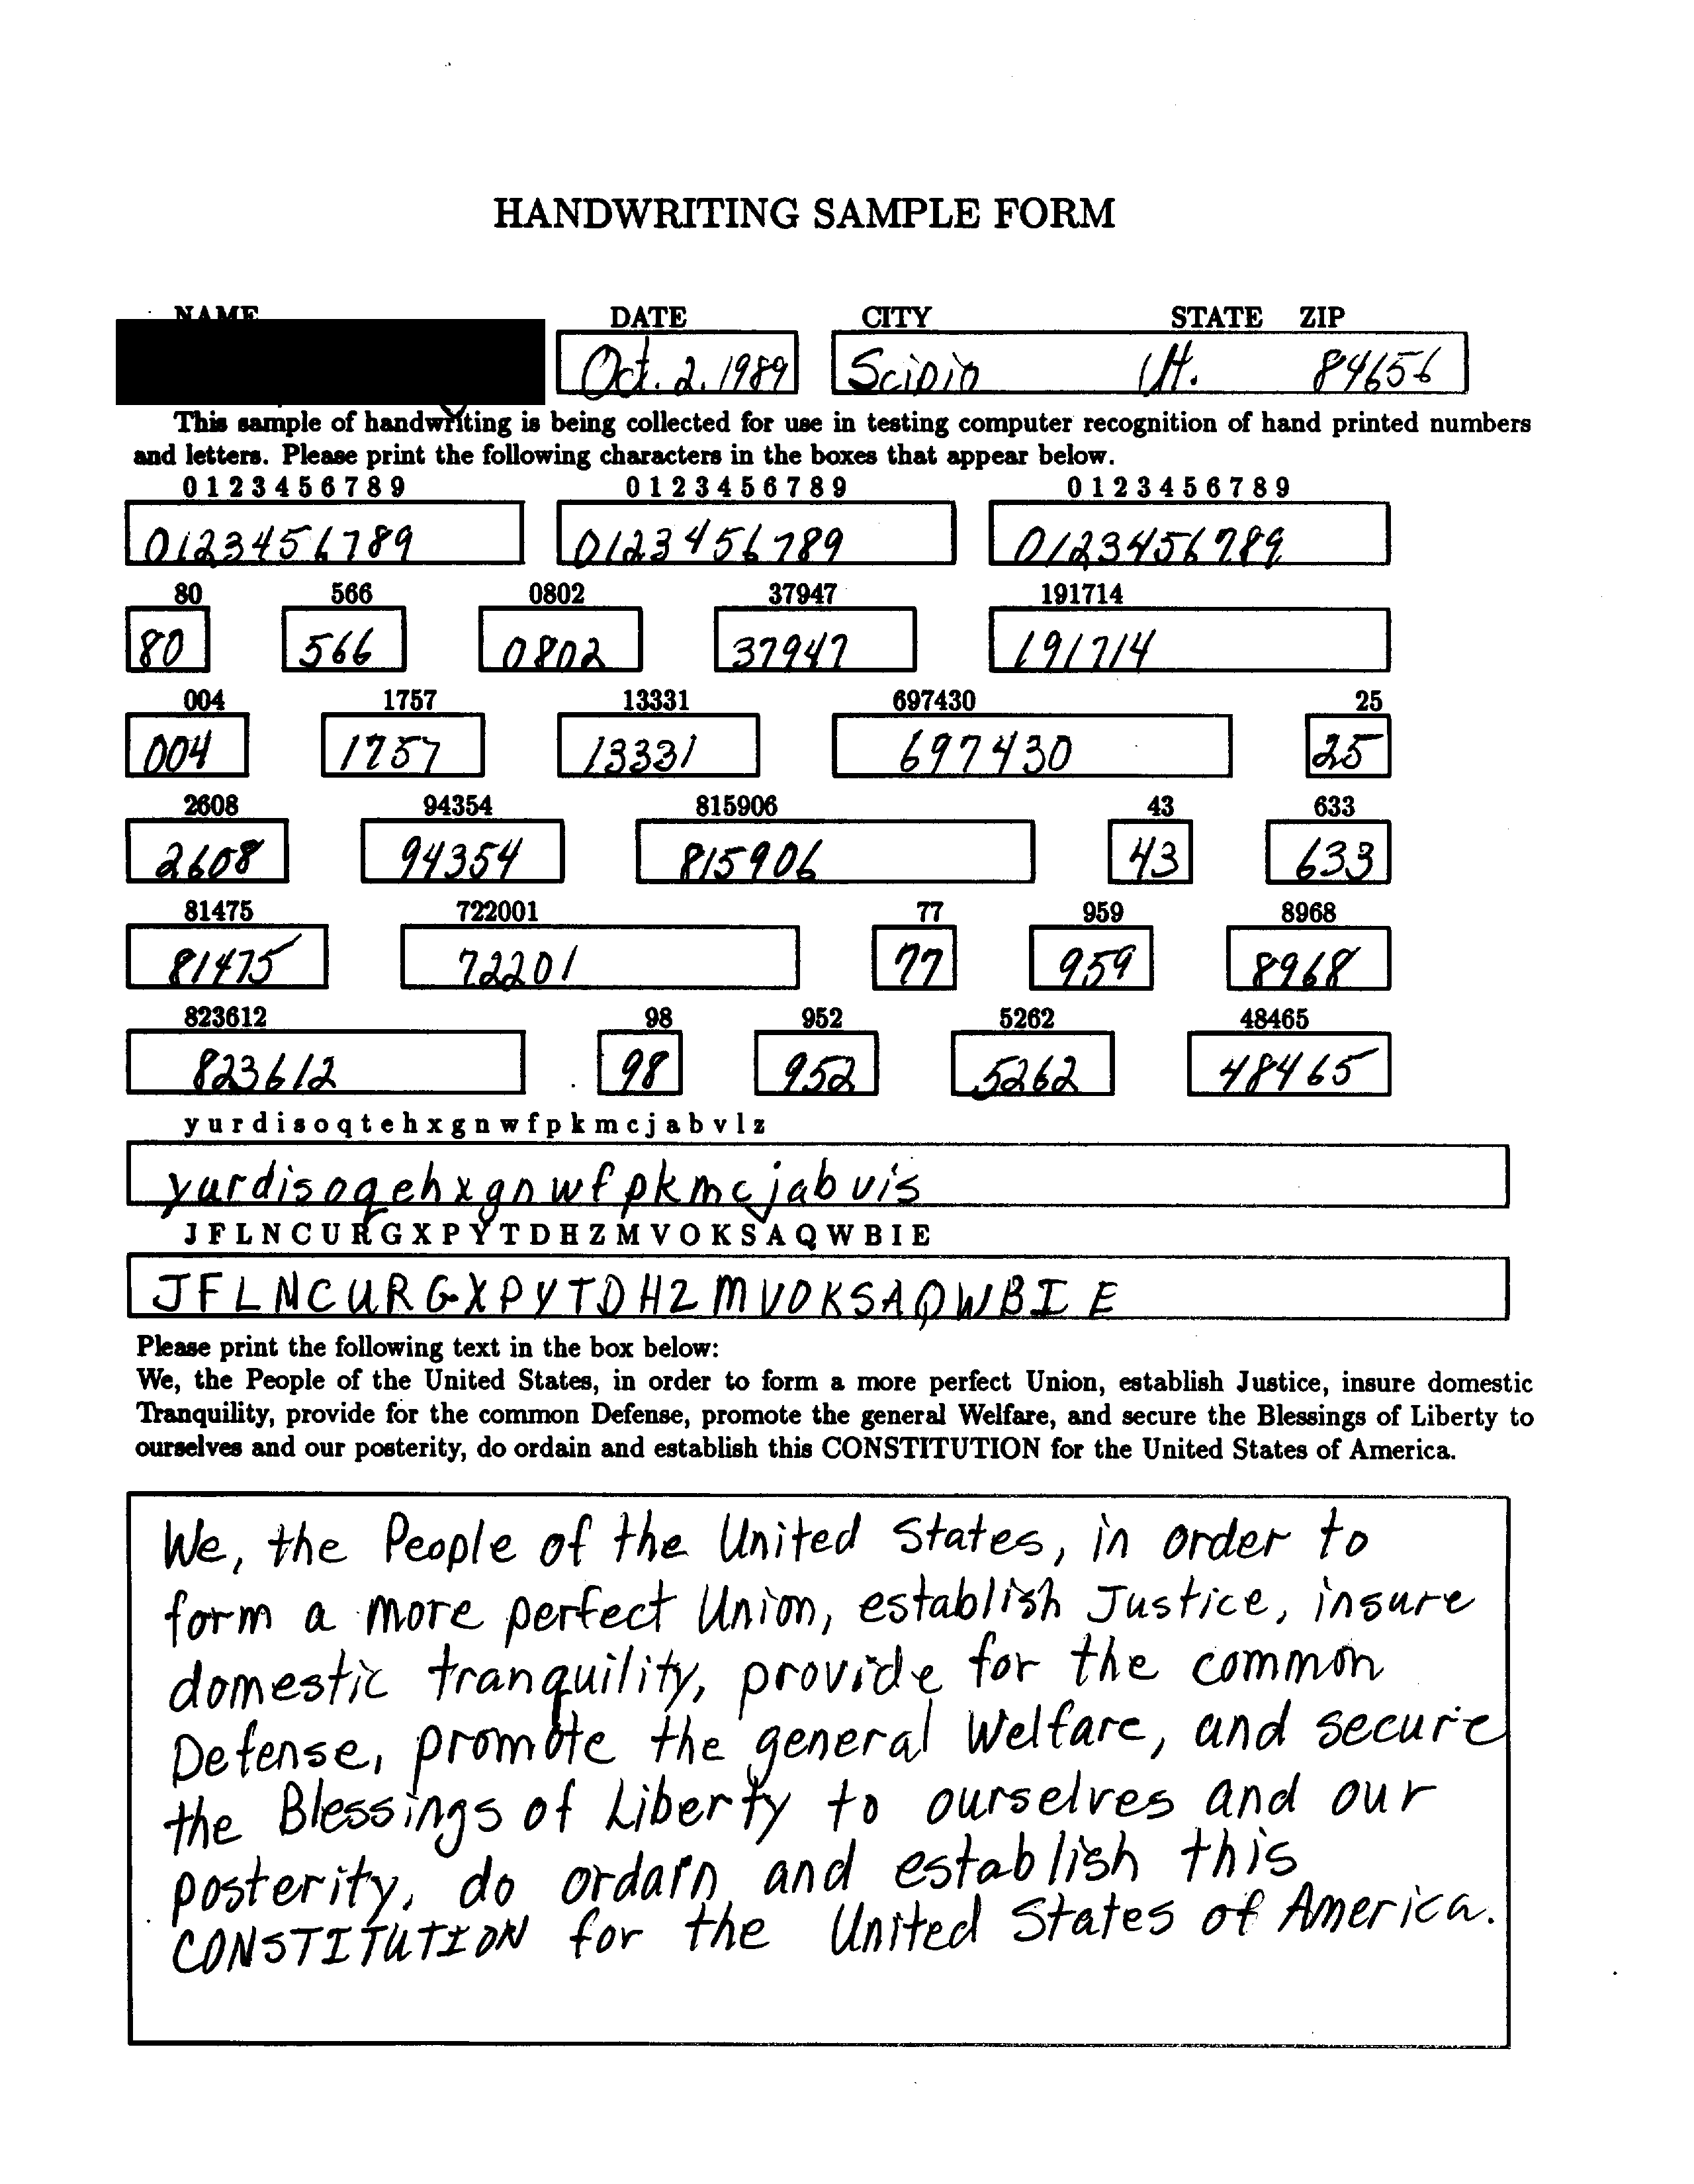 HANDWRITING SAMPLE FORM
NAME DATE CITY STATE ZIP
Oct. 2, 1989 Scipio Ut. 84656
This sample of handwriting is being collected for use in testing computer recognition of hand printed numbers
and letters. Please print the following characters in the boxes that appear below.
0 1 2 3 4 5 6 7 8 9 0 1 2 3 4 5 6 7 8 9 0 1 2 3 4 5 6 7 8 9
0123456789 0123456789 0123456789
80 566 0802 37947 191714
80 566 0802 37947 191714
004 1757 13331 697430 25
004 1757 13331 697430 25
2608 94354 815906 43 633
2608 94354 815906 43 633
81475 722001 77 959 8968
81475 72201 77 959 8968
823612 98 952 5262 48465
823612 98 952 5262 48465
y u r d i s o q t e h x g n w f p k m c j a b v l z
yurdisoqehxgnwfpkmcjabvis
J F L N C U R G X P Y T D H Z M V O K S A Q W B I E
JFLNCURGXPYTDHZMVOKSAQWBIE
Please print the following text in the box below:
We, the People of the United States, in order to form a more perfect Union, establish Justice, insure domestic
Tranquility, provide for the common Defense, promote the general Welfare, and secure the Blessings of Liberty to
ourselves and our posterity, do ordain and establish this CONSTITUTION for the United States of America.
We, the People of the United States, in order to
form a more perfect Union, establish Justice, insure
domestic tranquility, provide for the common
Defense, promote the general Welfare, and secure
the Blessings of Liberty to ourselves and our
posterity, do ordain and establish this
CONSTITUTION for the United States of America.